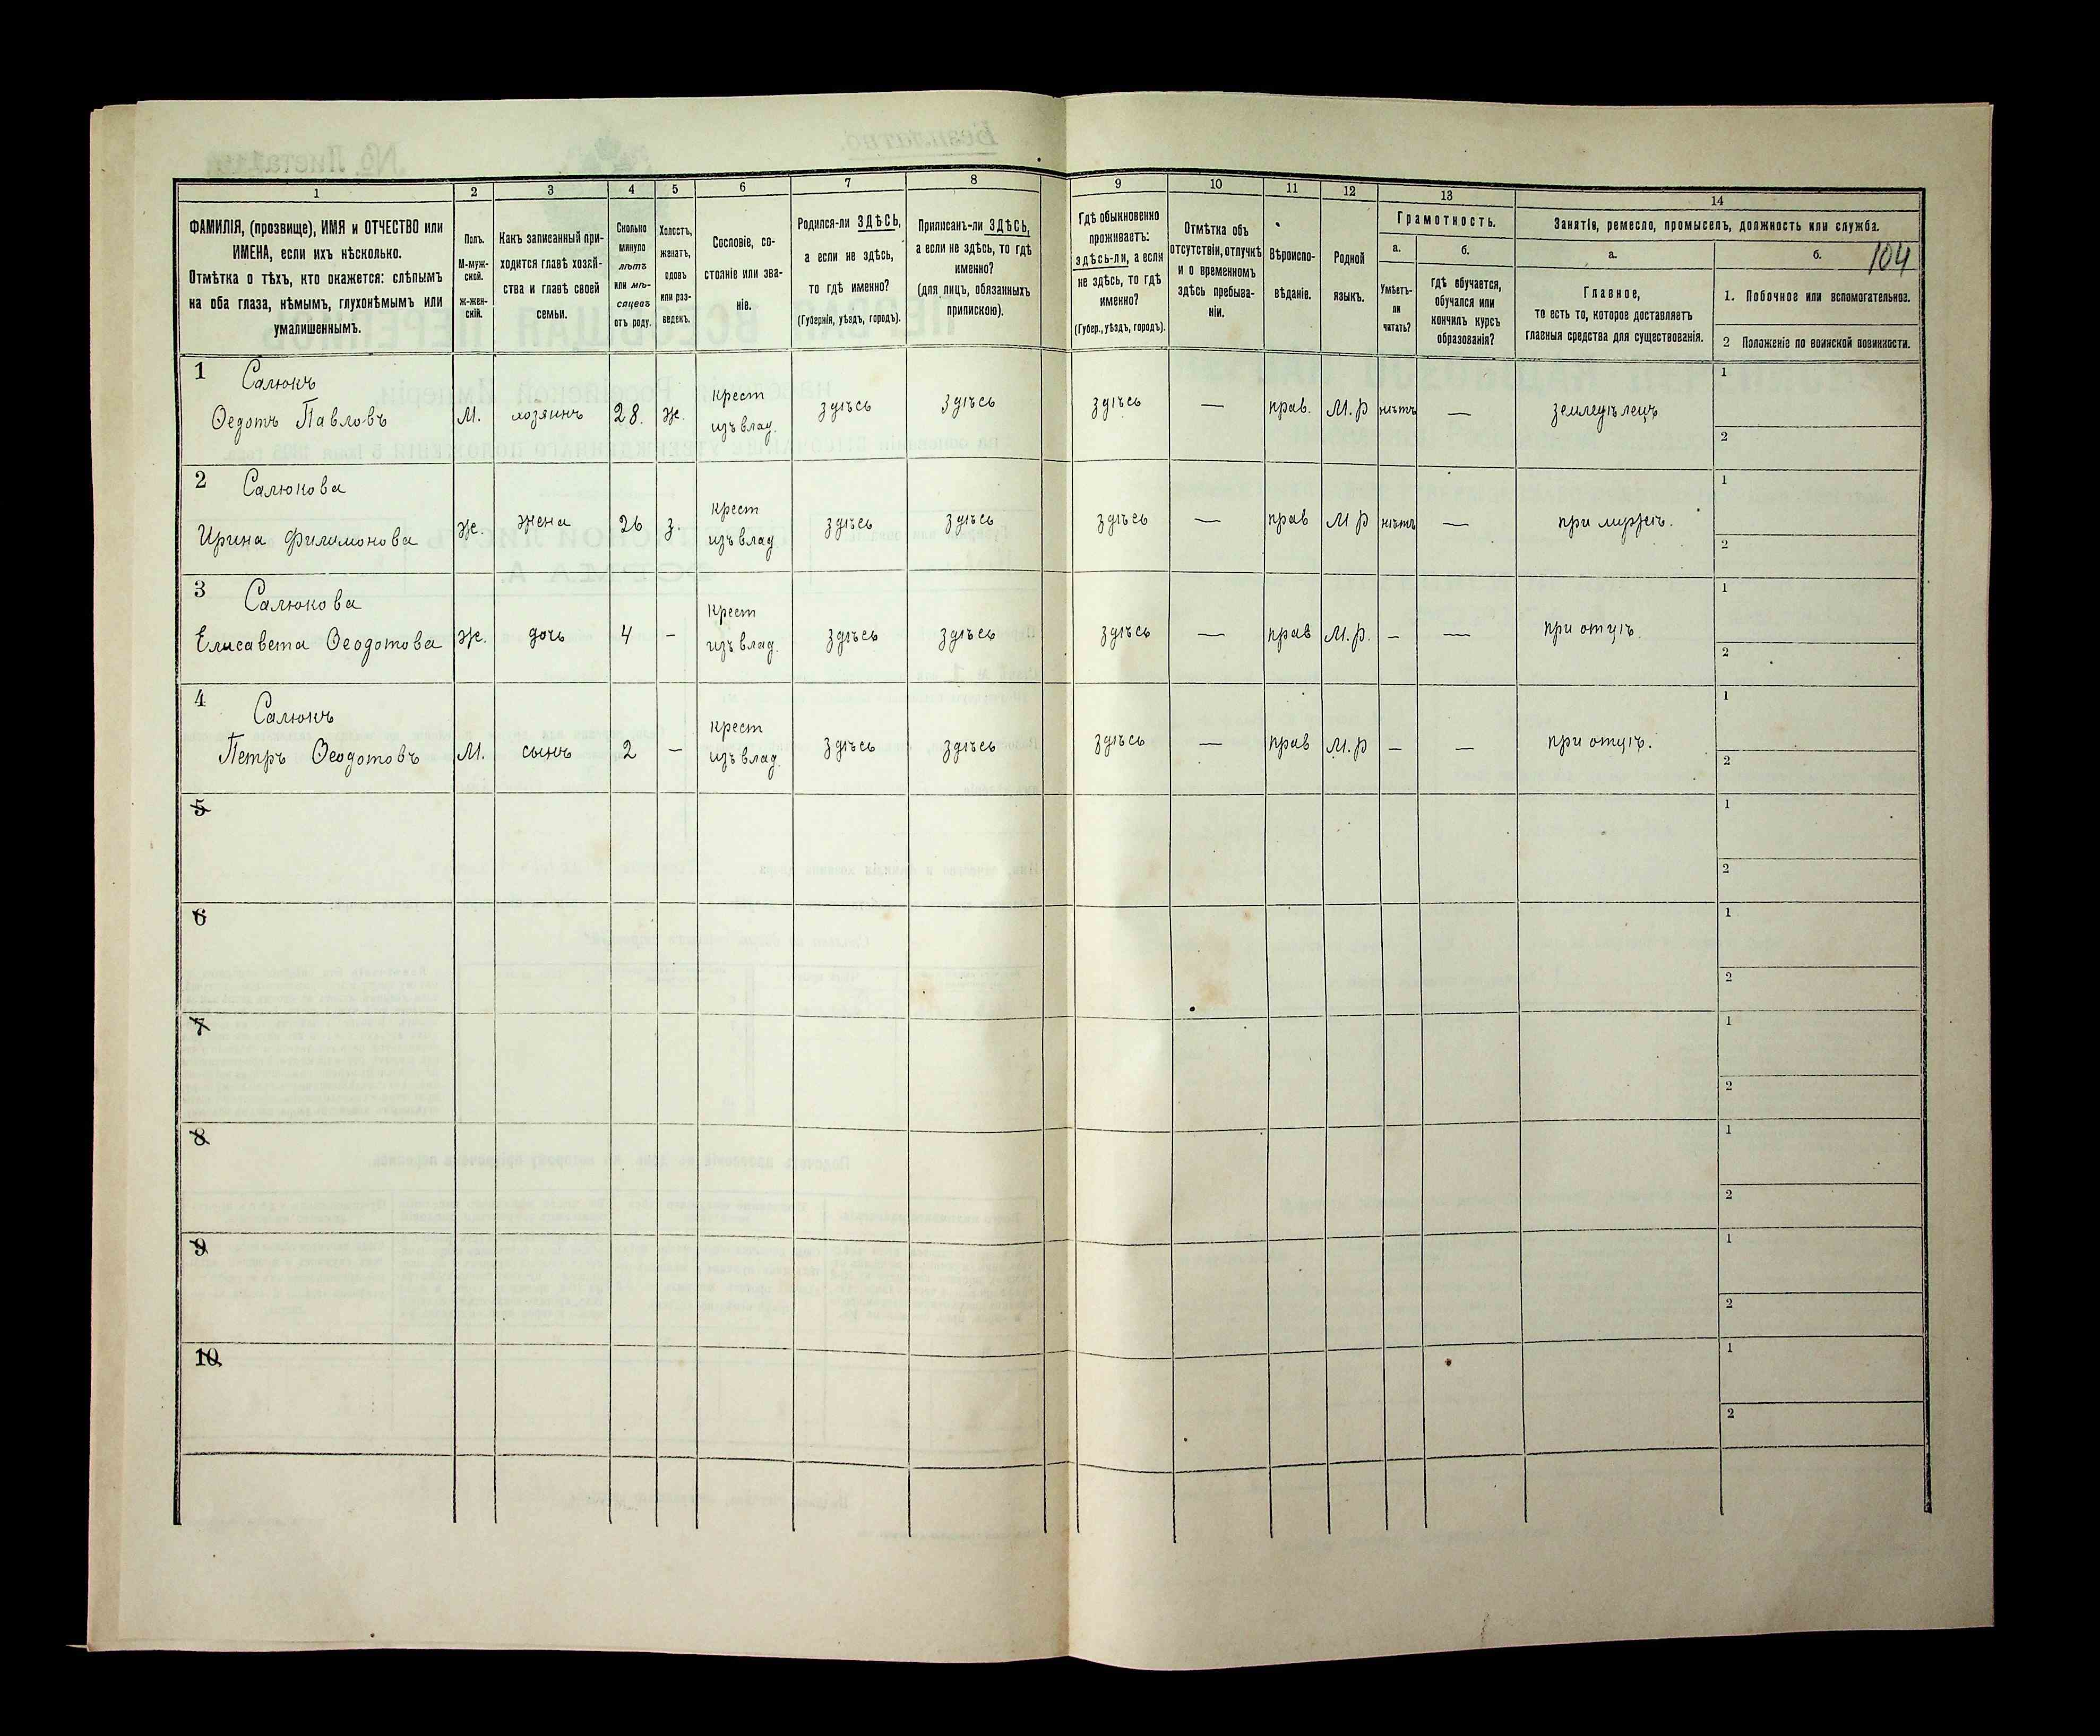 104
1 2 3 4 5 6 7 8 9 10 11 12 13 14
ФАМИЛІЯ, (прозвище), ИМЯ и ОТЧЕСТВО или
ИМЕНА, если ихъ нѣсколько.
Отмѣтка о тѣхъ, кто окажется: слѣпымъ
на оба глаза, нѣмымъ, глухонѣмымъ или
умалишеннымъ.
Полъ.
М-муж-
ской.
ж-жен-
скій.
Какъ записанный при-
ходится главѣ хозяй-
ства и главѣ своей
семьи.
Сколько
минуло
лѣтъ
или мѣ-
сяцевъ
отъ роду.
Холостъ,
женатъ,
вдовъ
или раз-
веденъ.
Сословіе, со-
стояніе или зва-
ніе.
Родился-ли ЗДѢСЬ,
а если не здѣсь,
то гдѣ именно?
(Губернія, уѣздъ, городъ).
Приписанъ-ли ЗДѢСЬ,
а если не здѣсь, то гдѣ
именно?
(для лицъ, обязанныхъ
припискою).
Гдѣ обыкновенно
проживаетъ:
здѣсь-ли, а если
не здѣсь, то гдѣ
именно?
(Губер., уѣздъ, городъ).
Отмѣтка объ
отсутствіи, отлучкѣ
и о временномъ
здѣсь пребыва-
ніи.
Вѣроиспо-
вѣданіе.
Родной
языкъ.
Грамотность.
а.
Умѣетъ-
ли
читать?
б.
гдѣ обучается,
обучался или
кончилъ курсъ
образованія?
Занятія, ремесло, промыселъ, должность или служба.
а.
Главное,
то есть то, которое доставляетъ
главныя средства для существованія.
б.
1. Побочное или вспомогательное.
2 Положеніе по воинской повинности.
1 Салюкъ
Ѳедотъ Павловъ М. хозяинъ 28. ж. крест изъ влад. здѣсь здѣсь здѣсь — прав. М.р нѣтъ — земледѣлецъ
1
2
2 Салюкова
Ирина Филимонова ж. жена 26 з. крест изъ влад здѣсь здѣсь здѣсь — прав М р нѣтъ — при мужѣ.
1
2
3 Салюкова
Елисавета Ѳеодотова ж. дочь 4 - крест изъ влад. здѣсь здѣсь здѣсь — прав М.р. - — при отцѣ.
1
2
4 Салюкъ
Петръ Ѳеодотовъ М. сынъ 2 - крест изъ влад. здѣсь здѣсь здѣсь — прав М.р - — при отцѣ.
1
2
5
1
2
6
1
2
7
1
2
8
1
2
9
1
2
10
1
2